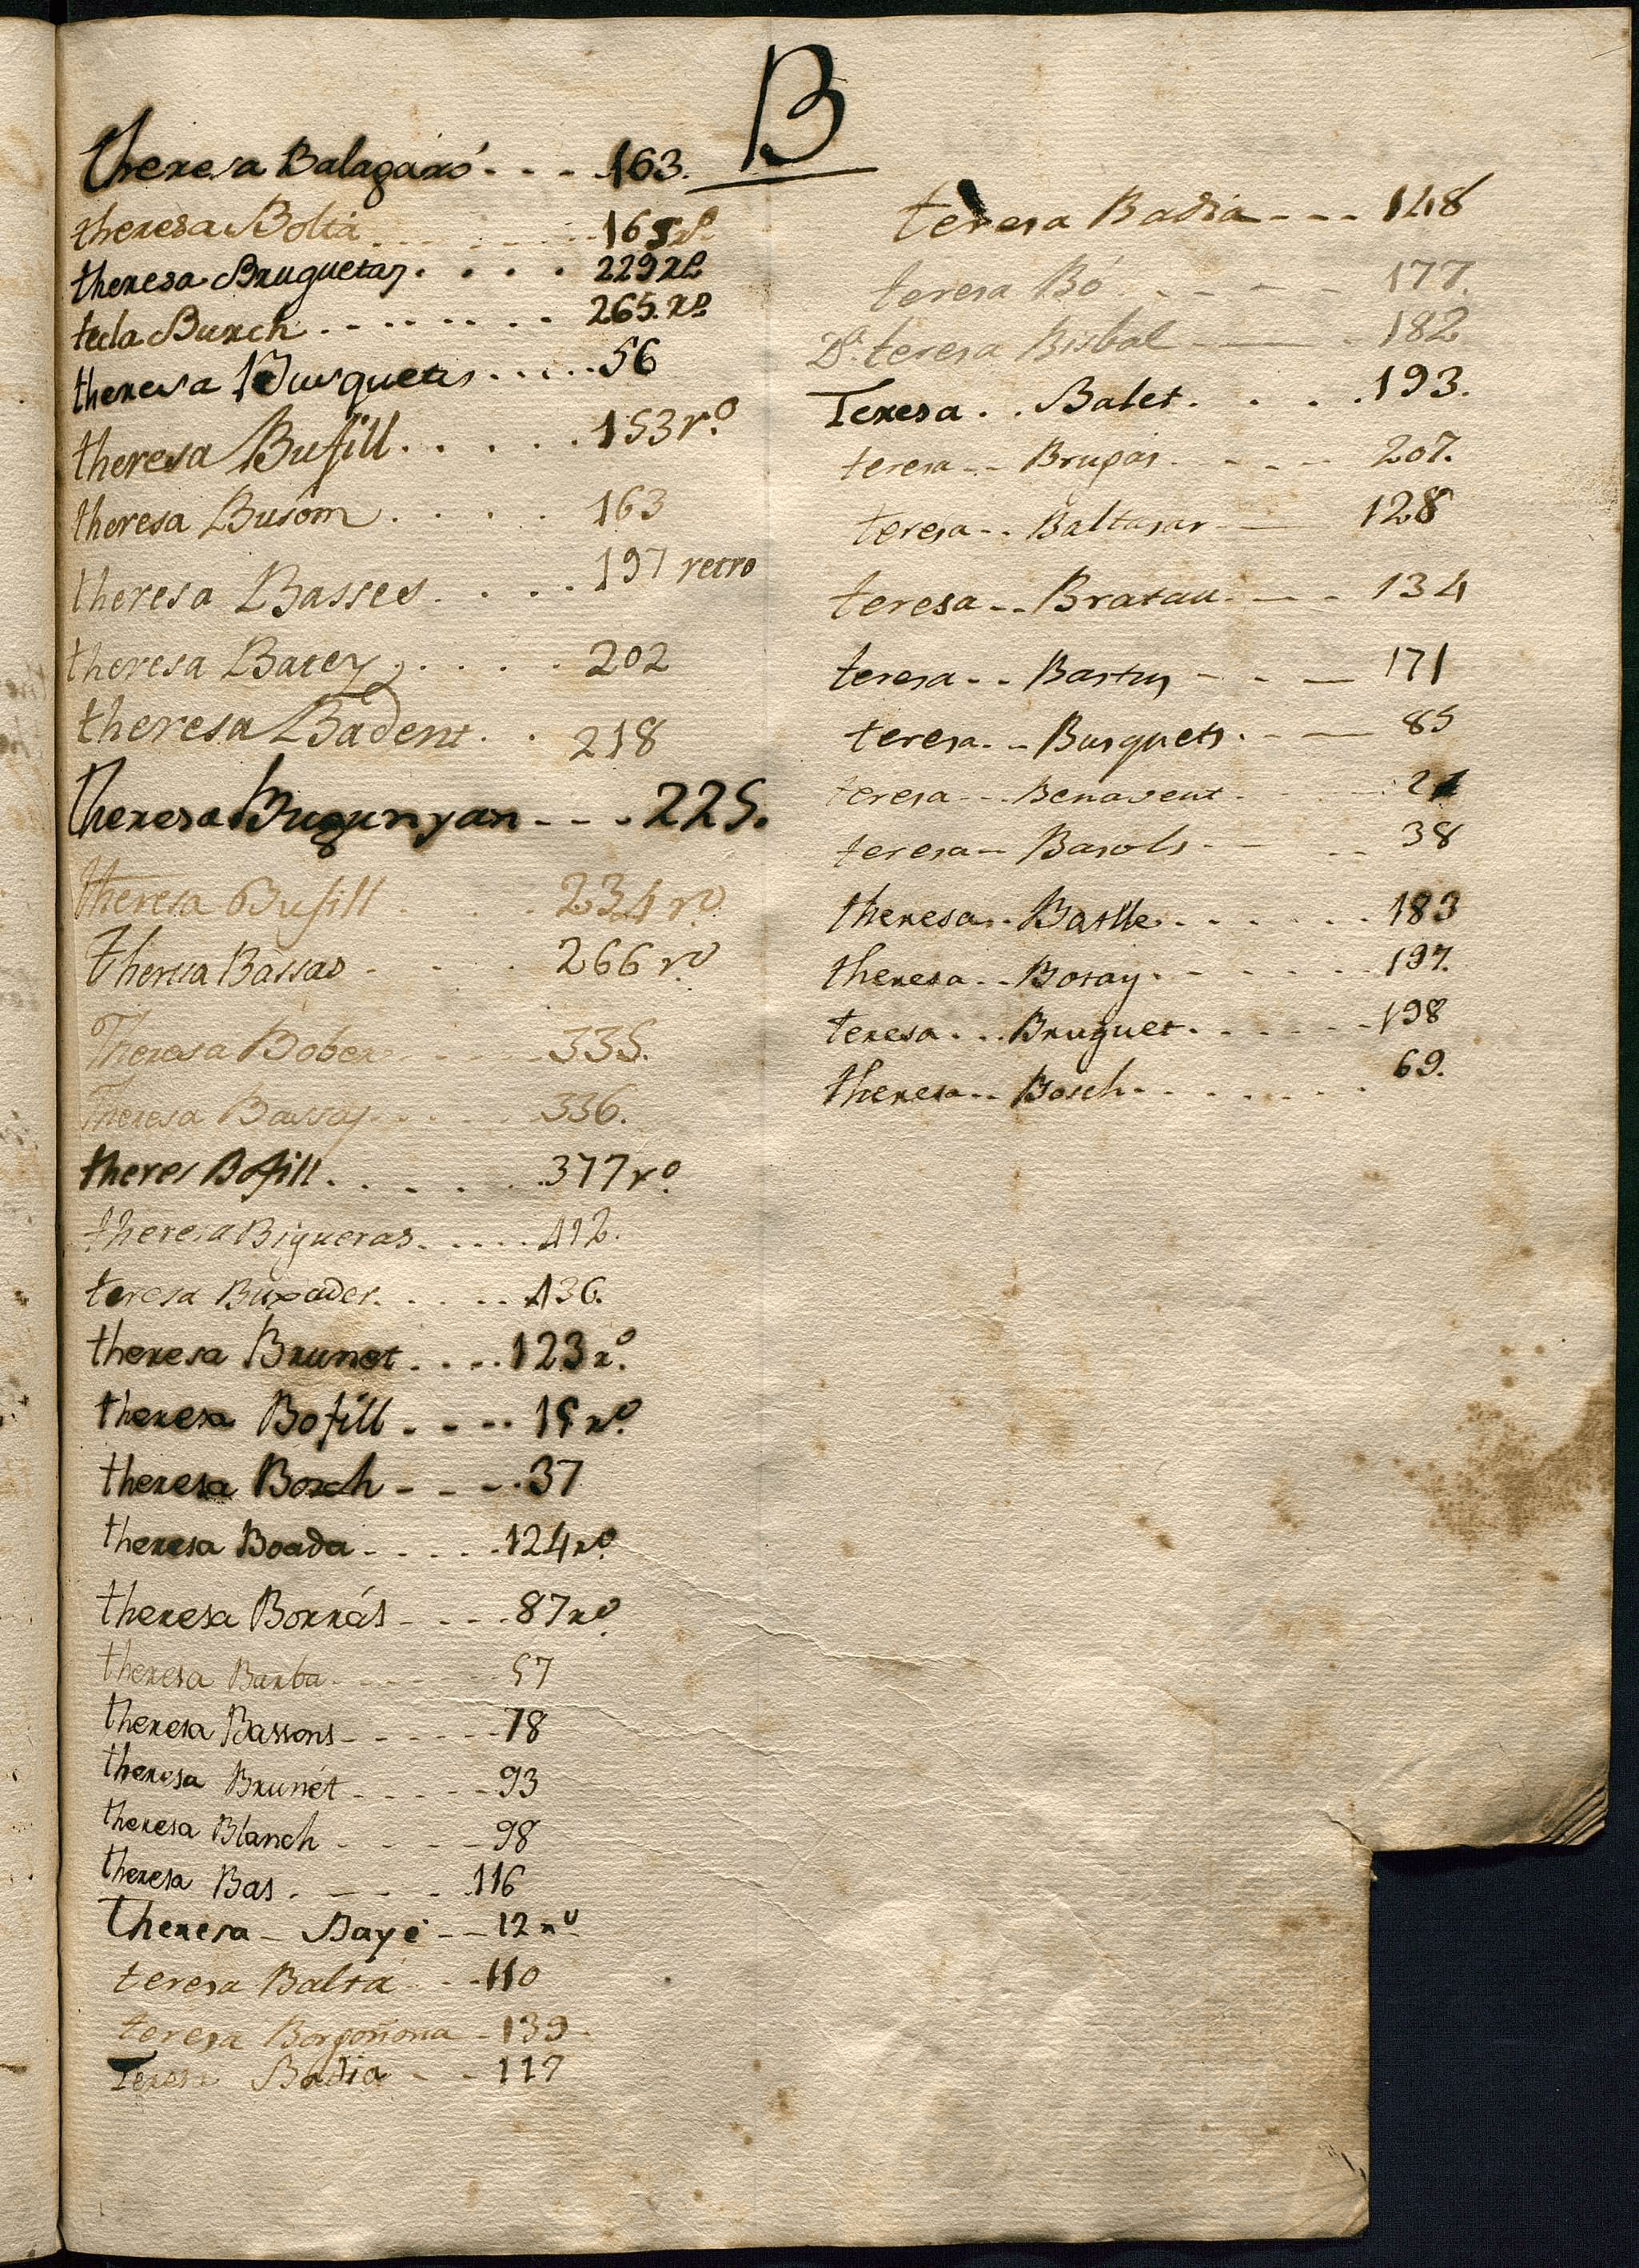 B
Theresa Balagaró - - - 163.
theresa Boltá - - - - - 165 rº
theresa Bruguetas . . . . 229 rº
tecla Burch . . . . . . . 265. rº
theresa Busquets . . . . . 56
theresa Bufill . . . . . 153 rº
theresa Busom . . . . . 163
theresa Basses . . . . 197 retro
theresa Batey . . . . . 202
theresa Badent . . 218
Theresa Bugunyan - - - . 225.
theresa Bufill . . . . 234 rº
Theresa Bassas . . . . 266 rº
Theresa Bober - - - - 335.
Theresa Bassas . . . . 336.
theres Bofill . . . . . . 377 rº
theresa Bigueras . . . . . 412.
teresa Buxades . . . . . 436.
theresa Brunet . . . . 123 rº
theresa Bofill . - - - 15 rº
theresa Bosch - - - . 37
theresa Boada - . . . . 124 rº
theresa Borrás - - - . 87 rº
theresa Burba - - - - - 57
theresa Bassons - - - - - - 78
theresa Brunét - - - - - 93
theresa Blanch - - - - 98
theresa Bas . - - - . 116
Theresa - Bayé - - 12 rº
teresa Baltá - - - 110
teresa Borgoñona - 139
Teresa Badia - - 117
teresa Badia - - - 148
teresa Bó - - - - - 177.
Dª. teresa Bisbal - — 182
Teresa . . Balet . . . . 193.
teresa - - Brugas - - - - 207.
teresa - - Baltasar — 128
teresa - - Bratau - - - 134
teresa - - Bartus - - — 171
teresa - - Busquets - - — 85
teresa - - - Benavent - - - - 21
teresa - - Basols - - - - 38
theresa . . Batlle . . . . . . 183
theresa . . Botay . - - - - - 197.
teresa . . . Bruguet . - - - - - 198
theresa - - Bosch - . . . . . 69.